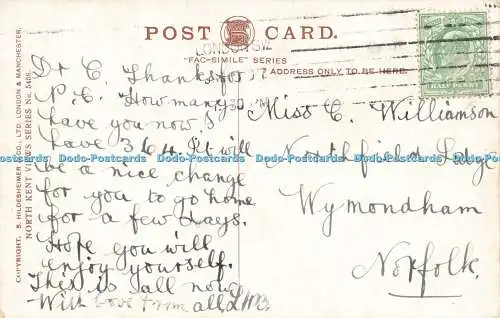 POST CARD.
"FAC-SIMILE" SERIES
ADDRESS ONLY TO BE HERE.
LONDON S.E.
HALF PENNY
COPYRIGHT. S. HILDESHEIMER & CO., LTD. LONDON & MANCHESTER.
NORTH KENT VIEWS SERIES No. 5468.
Dr C. Thanks for
P.C. How many
have you now?
have 364. It will
be a nice change
for you to go home
for a few days.
Hope you will
enjoy yourself.
This is all now
With love from all,
Miss C. Williamson
Northfield Lodge
Wymondham
Norfolk.
Dodo-Postcards Dodo-Postcards Dodo-Postcards Dodo-Postcards Dodo-Postcards Dodo-Postcards